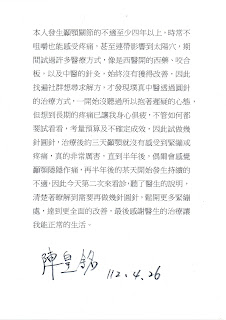 本人發生顳顎關節的不適至少四年以上，時常不
咀嚼也能感受疼痛，甚至連帶影響到太陽穴，期
間試過許多醫療方式，像是西醫開的西藥、咬合
板，以及中醫的針灸，始終沒有獲得改善，因此
找遍社群想尋求解方，才發現璞真中醫透過圓針
的治療方式，一開始沒聽過所以抱著遲疑的心態，
但想到長期的疼痛已讓我身心俱疲，不管如何都
要試看看，考量預算及不確定成效，因此試做幾
針圓針，治療後約三天顳顎就沒有感受到緊繃或
疼痛，真的非常厲害，直到半年後，偶爾會感覺
顳顎隱隱作痛，再半年後的某天開始發生持續的
不適，因此今天第二次來看診，聽了醫生的說明，
清楚著瞭解到需要再做幾針圓針，鬆開更多緊繃
處，達到更全面的改善，最後感謝醫生的治療讓
我能正常的生活。
陳皇銘 112.4.26